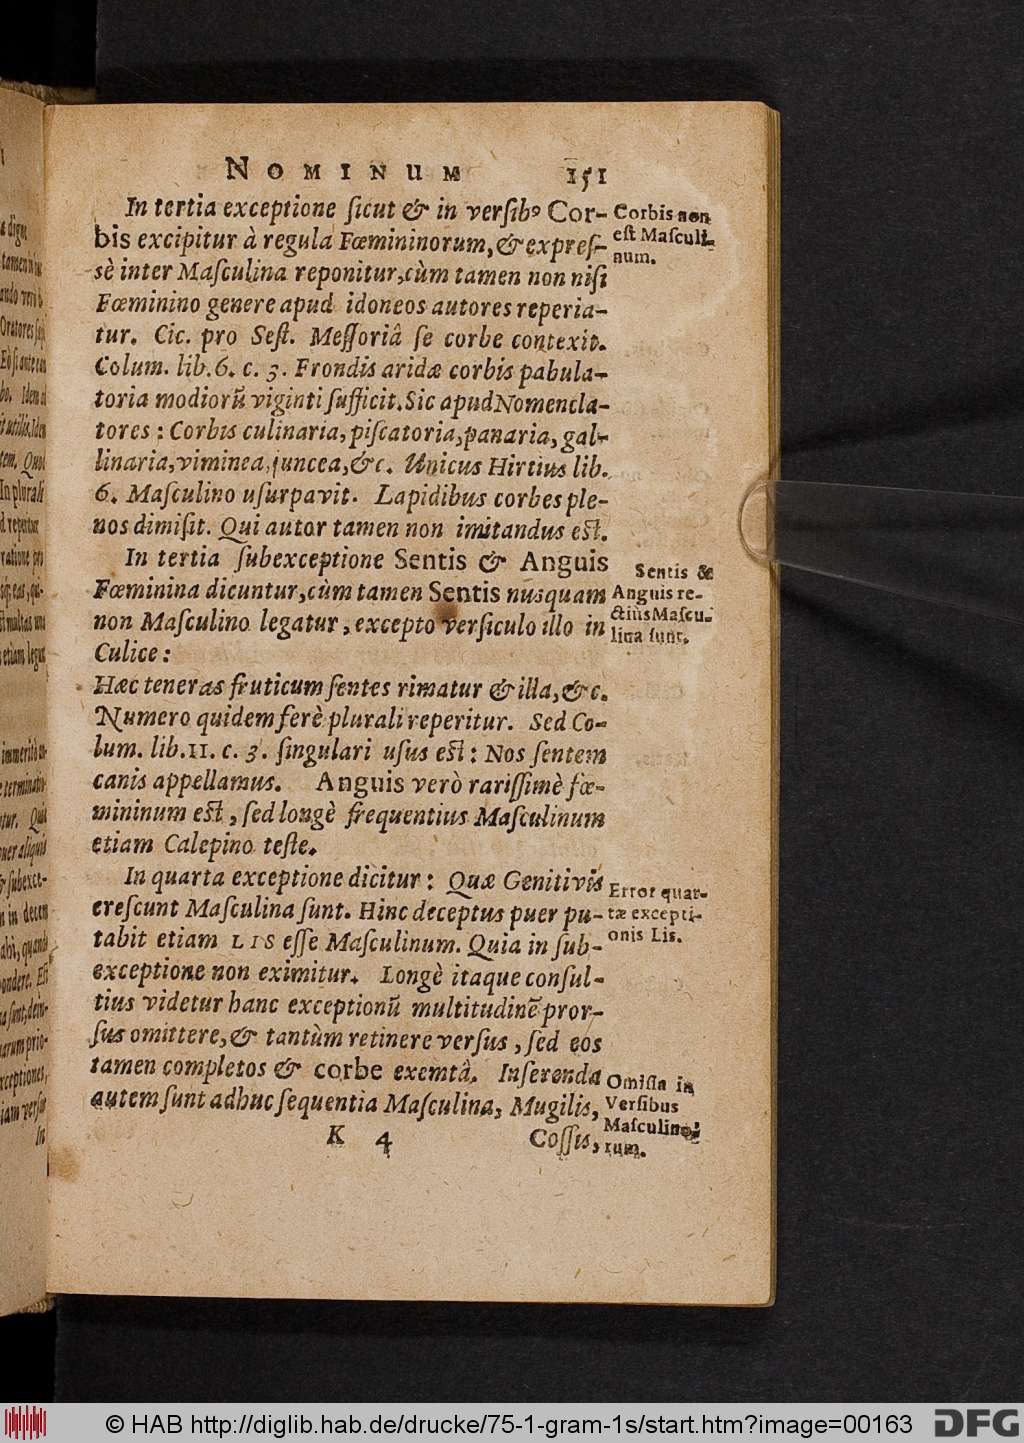 NOMINUM 151
In tertia exceptione ſicut & in verſibꝰ Cor-
bis excipitur à regula Fœmininorum, & expreſ-
sè inter Maſculina reponitur, cùm tamen non niſi
Fœminino genere apud idoneos autores reperia-
tur. Cic. pro Seſt. Meſſoriâ ſe corbe contexit.
Colum. lib. 6. c. 3. Frondis aridæ corbis pabula-
toria modiorũ viginti ſufficit. Sic apud Nomencla-
tores: Corbis culinaria, piſcatoria, panaria, gal-
linaria, viminea, juncea, &c. Unicus Hirtius lib.
6. Maſculino uſurpavit. Lapidibus corbes ple-
nos dimiſit. Qui autor tamen non imitandus eſt.
In tertia ſubexceptione Sentis & Anguis
Fœminina dicuntur, cùm tamen Sentis nusquam
non Maſculino legatur, excepto verſiculo illo in
Culice:
Hæc teneras fruticum ſentes rimatur & illa, &c.
Numero quidem ferè plurali reperitur. Sed Co-
lum. lib. 11. c. 3. ſingulari uſus eſt: Nos ſentem
canis appellamus. Anguis verò rariſſimè fœ-
mininum eſt, ſed longè frequentius Maſculinum
etiam Calepino teſte.
In quarta exceptione dicitur: Quæ Genitivis
creſcunt Maſculina ſunt. Hinc deceptus puer pu-
tabit etiam LIS eſſe Maſculinum. Quia in ſub-
exceptione non eximitur. Longè itaque conſul-
tius videtur hanc exceptionũ multitudinẽ pror-
ſus omittere, & tantùm retinere verſus, ſed eos
tamen completos & corbe exemtâ. Inſerenda
autem ſunt adhuc ſequentia Maſculina, Mugilis,
K 4 Coſſis,
Corbis non
eſt Maſculi-
num.
Sentis &
Anguis re-
ctius Maſcu-
lina ſunt.
Error quar-
tæ excepti-
onis Lis.
Omiſſa in
Verſibus
Maſculino-
rum.
© HAB http://diglib.hab.de/drucke/75-1-gram-1s/start.htm?image=00163
DFG